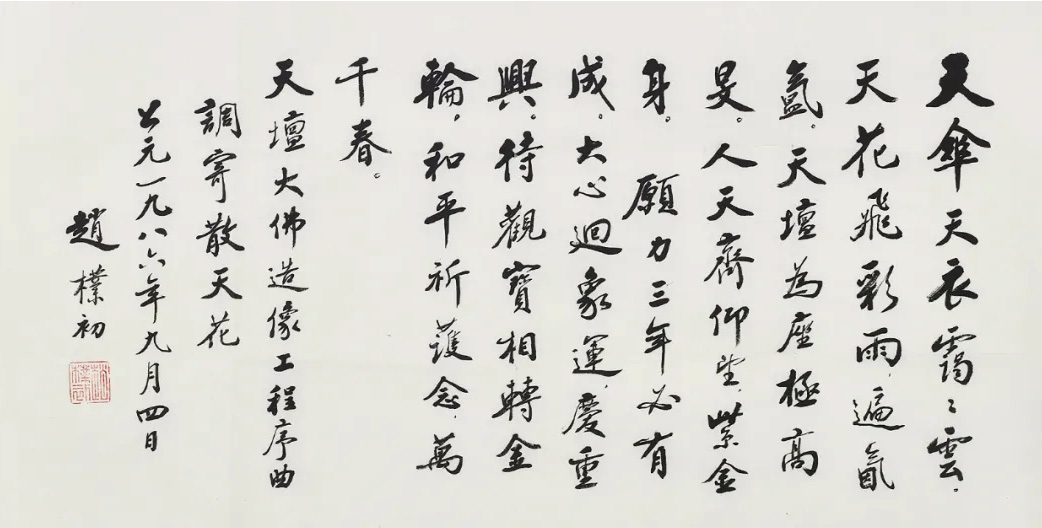 天傘天衣靄〻雲.
天花飛彩雨.遍氤
氳。天壇為座極高
旻。人天齊仰望.紫金
身。願力三年必有
成。大心迴象運.慶重
興。待觀寶相轉金
輪。和平祈護念.萬
千春。
天壇大佛造像工程序曲
調寄散天花
公元一九八六年九月四日
趙樸初